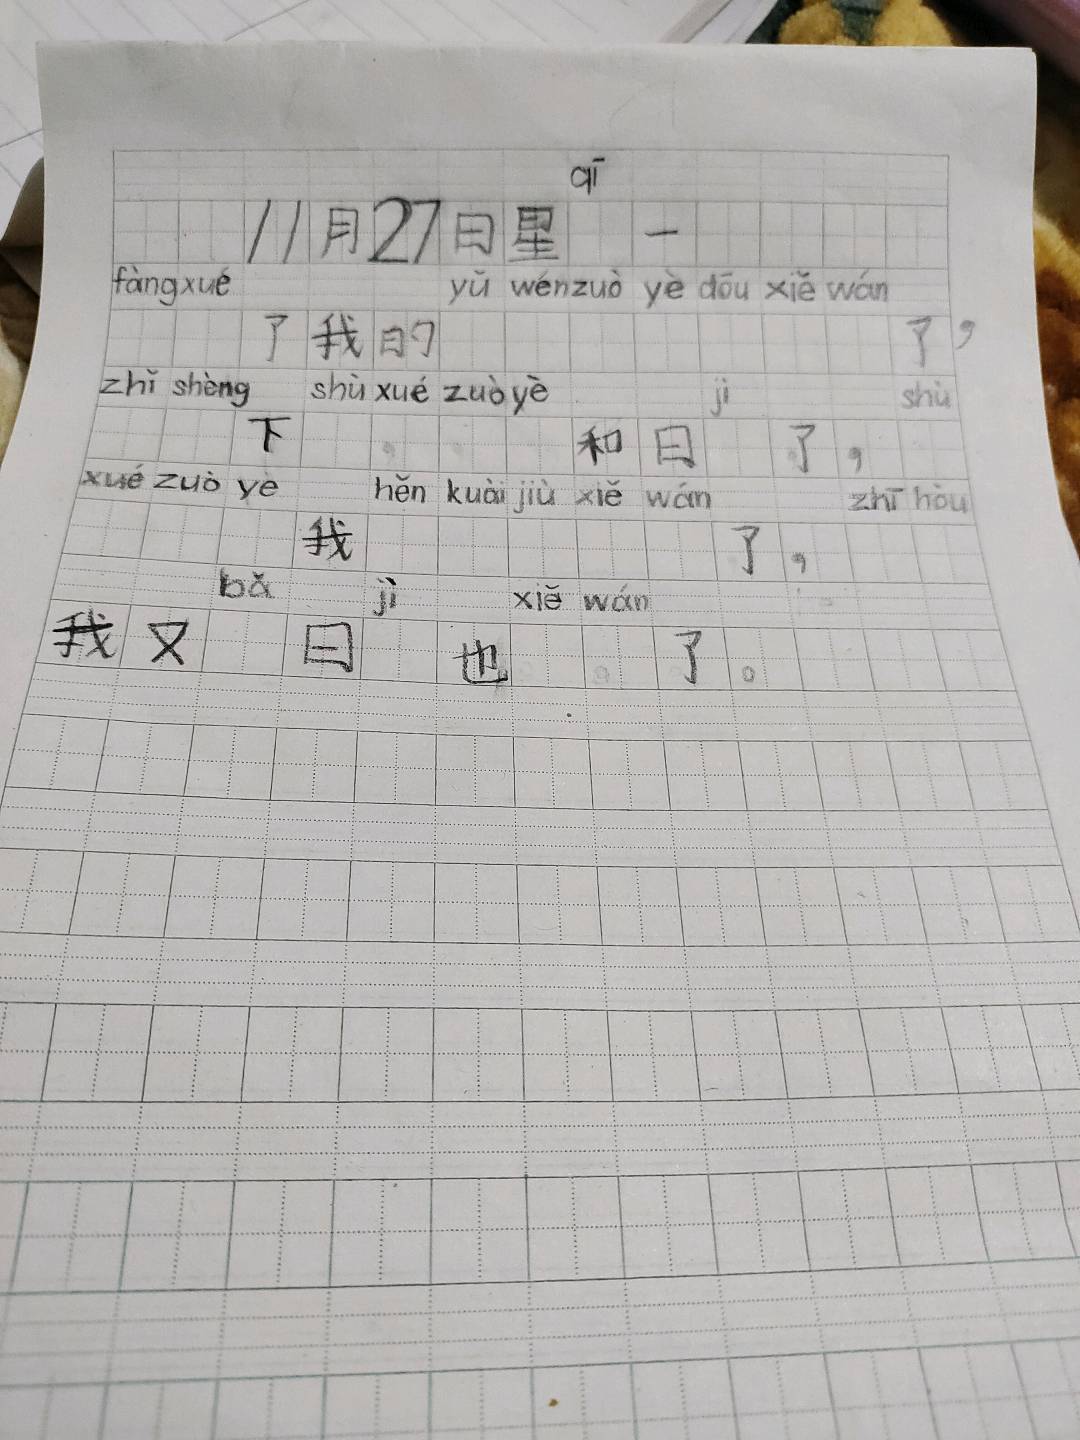 qī
11月27日星 一
fàngxué yǔ wénzuò yè dōu xiě wán
了我的 了，
zhǐ shèng shù xué zuò yè jì shù
下 和日 了，
xué zuò yè hěn kuài jiù xiě wán zhī hòu
我 了，
bǎ jì xiě wán
我又 日 也 了。